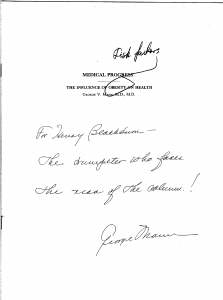 Risk factors
MEDICAL PROGRESS
THE INFLUENCE OF OBESITY ON HEALTH
GEORGE V. MANN, Sc.D., M.D.
For Henry Blackburn —
The trumpeter who faces
the rear of the column!
George Mann